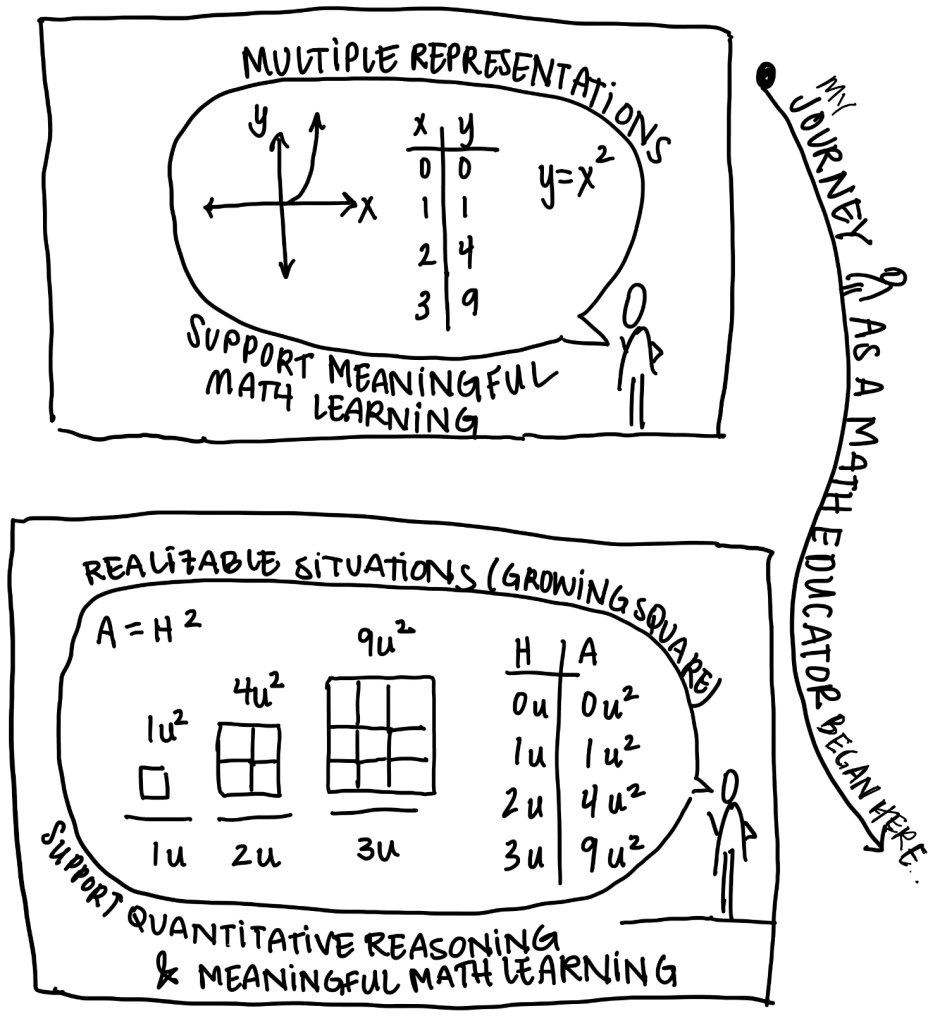 MULTIPLE REPRESENTATIONS
y
x
x y
0 0
1 1
2 4
3 9
y=x²
SUPPORT MEANINGFUL
MATH LEARNING
MY
JOURNEY AS A MATH EDUCATOR BEGAN HERE..
REALIZABLE SITUATIONS (GROWING SQUARE)
A = H²
1u²
4u²
9u²
1u
2u
3u
H A
0u 0u²
1u 1u²
2u 4u²
3u 9u²
SUPPORT QUANTITATIVE REASONING
& MEANINGFUL MATH LEARNING